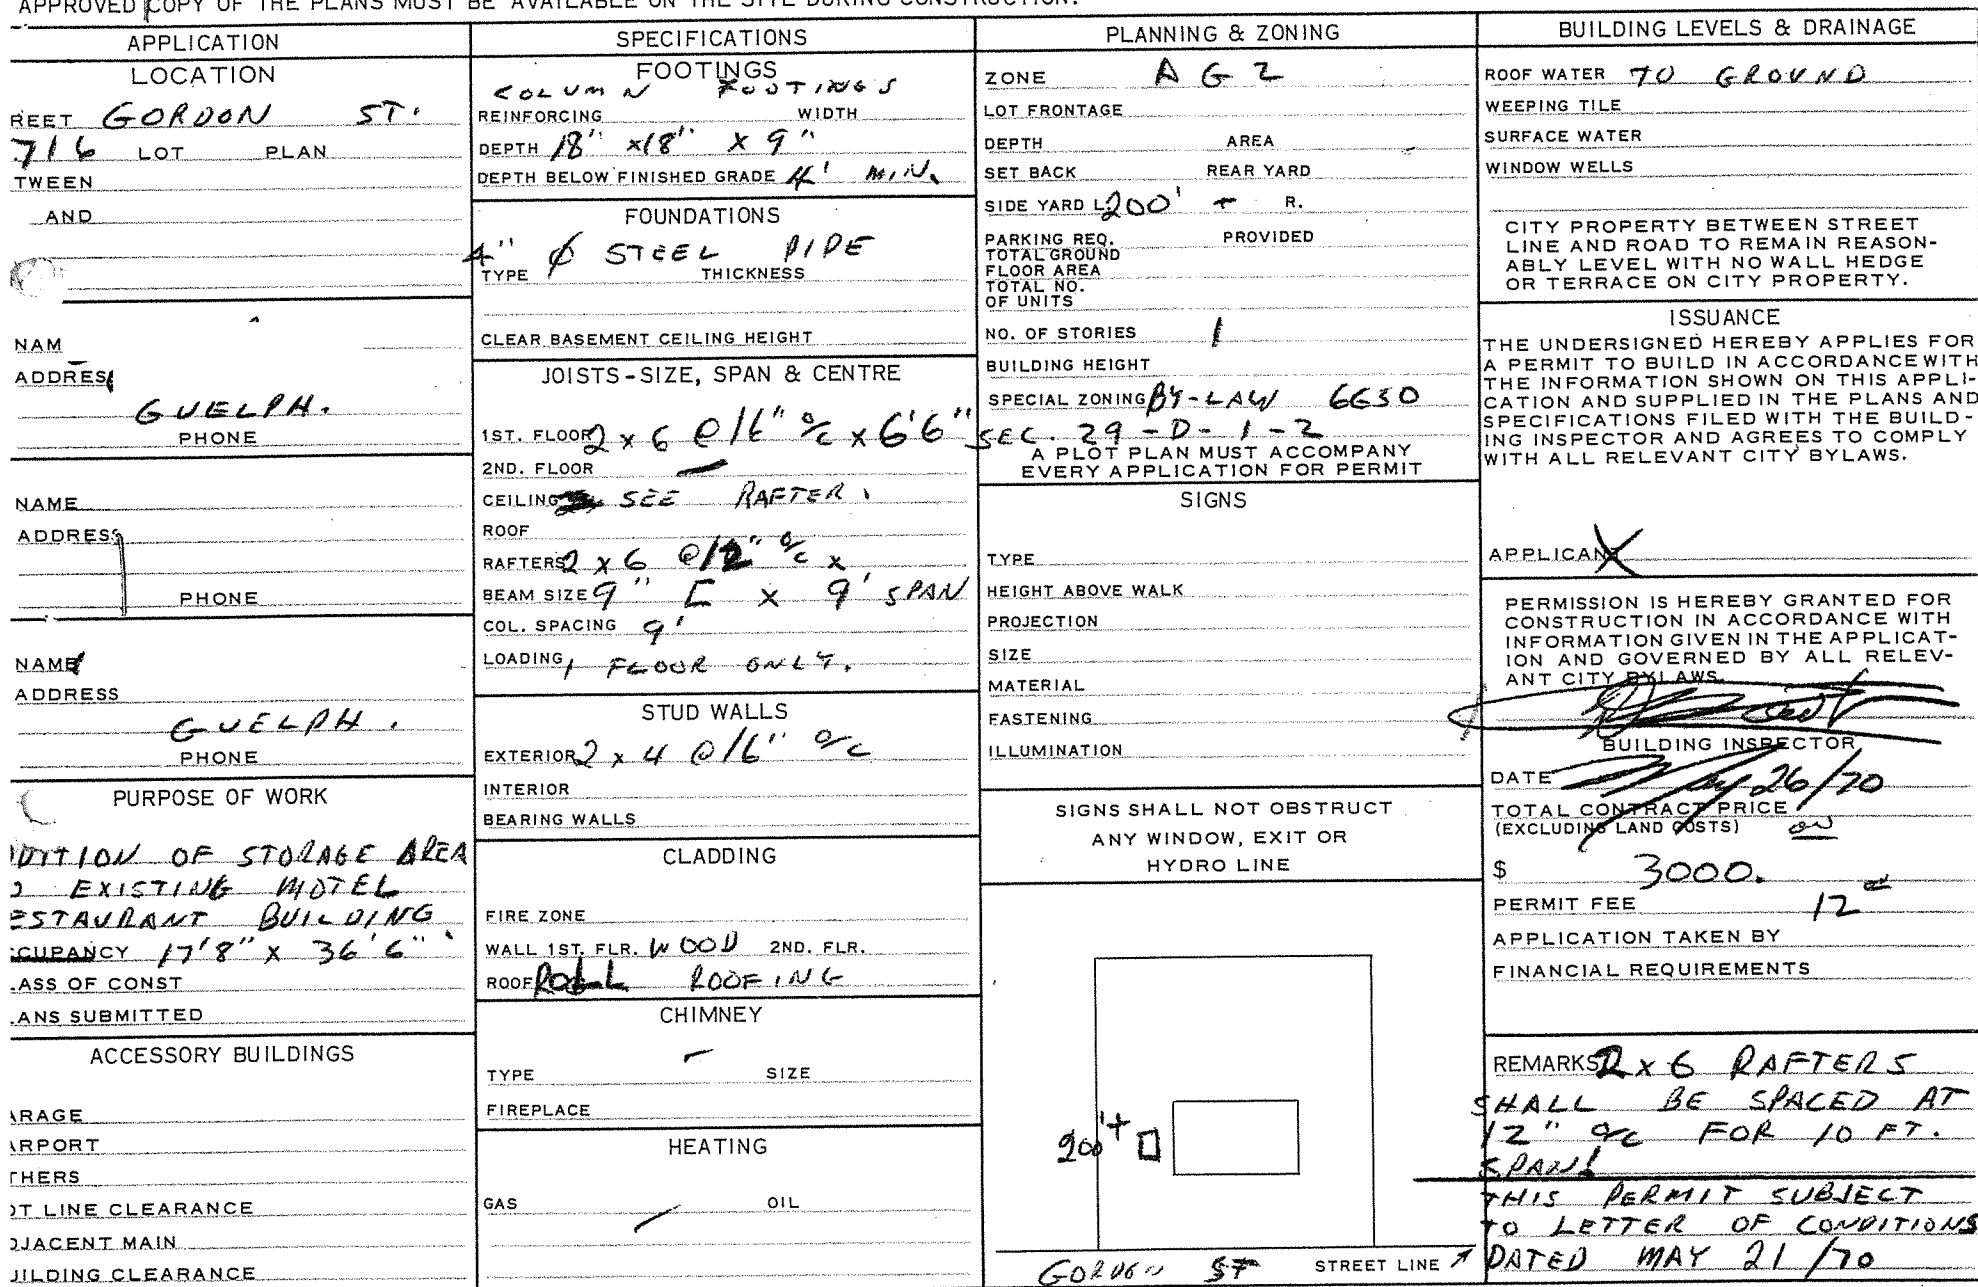 APPROVED COPY OF THE PLANS MUST BE AVAILABLE ON THE SITE DURING CONSTRUCTION.
APPLICATION
LOCATION
REET GORDON ST.
716 LOT PLAN
TWEEN
AND
NAM
ADDRES
GUELPH.
PHONE
NAME
ADDRESS
PHONE
NAME
ADDRESS
GUELPH.
PHONE
PURPOSE OF WORK
DITION OF STORAGE AREA
O EXISTING MOTEL
ESTAURANT BUILDING
CCUPANCY 17'8" X 36'6"
LASS OF CONST
LANS SUBMITTED
ACCESSORY BUILDINGS
ARAGE
ARPORT
THERS
OT LINE CLEARANCE
DJACENT MAIN
UILDING CLEARANCE
SPECIFICATIONS
FOOTINGS
COLUMN FOOTINGS
REINFORCING WIDTH
DEPTH 18" x18" x 9"
DEPTH BELOW FINISHED GRADE 4' MIN.
FOUNDATIONS
4" ϕ STEEL PIPE
TYPE THICKNESS
CLEAR BASEMENT CEILING HEIGHT
JOISTS-SIZE, SPAN & CENTRE
1ST. FLOOR 2 x 6 @ 16" o/c x 6'6"
2ND. FLOOR —
CEILING SEE RAFTER.
ROOF
RAFTERS 2 x 6 @ 12" o/c x
BEAM SIZE 9" [ x 9' SPAN
COL. SPACING 9'
LOADING 1 FLOOR ONLY.
STUD WALLS
EXTERIOR 2 x 4 @ 16" o/c
INTERIOR
BEARING WALLS
CLADDING
FIRE ZONE
WALL 1ST. FLR. WOOD 2ND. FLR.
ROOF ROLL ROOFING
CHIMNEY
TYPE — SIZE
FIREPLACE
HEATING
GAS — OIL
PLANNING & ZONING
ZONE AG2
LOT FRONTAGE
DEPTH AREA
SET BACK REAR YARD
SIDE YARD L 200' + R.
PARKING REQ. PROVIDED
TOTAL GROUND
FLOOR AREA
TOTAL NO.
OF UNITS
NO. OF STORIES 1
BUILDING HEIGHT
SPECIAL ZONING BY-LAW 6650
SEC. 29-D-1-2
A PLOT PLAN MUST ACCOMPANY
EVERY APPLICATION FOR PERMIT
SIGNS
TYPE
HEIGHT ABOVE WALK
PROJECTION
SIZE
MATERIAL
FASTENING
ILLUMINATION
SIGNS SHALL NOT OBSTRUCT
ANY WINDOW, EXIT OR
HYDRO LINE
200'+
GORDON ST STREET LINE
BUILDING LEVELS & DRAINAGE
ROOF WATER TO GROUND
WEEPING TILE
SURFACE WATER
WINDOW WELLS
CITY PROPERTY BETWEEN STREET
LINE AND ROAD TO REMAIN REASON-
ABLY LEVEL WITH NO WALL HEDGE
OR TERRACE ON CITY PROPERTY.
ISSUANCE
THE UNDERSIGNED HEREBY APPLIES FOR
A PERMIT TO BUILD IN ACCORDANCE WITH
THE INFORMATION SHOWN ON THIS APPLI-
CATION AND SUPPLIED IN THE PLANS AND
SPECIFICATIONS FILED WITH THE BUILD-
ING INSPECTOR AND AGREES TO COMPLY
WITH ALL RELEVANT CITY BYLAWS.
APPLICANT X
PERMISSION IS HEREBY GRANTED FOR
CONSTRUCTION IN ACCORDANCE WITH
INFORMATION GIVEN IN THE APPLICAT-
ION AND GOVERNED BY ALL RELEV-
ANT CITY BYLAWS.
BUILDING INSPECTOR
DATE May 26/70
TOTAL CONTRACT PRICE
(EXCLUDING LAND COSTS)
$ 3000.
PERMIT FEE 12
APPLICATION TAKEN BY
FINANCIAL REQUIREMENTS
REMARKS 2 x 6 RAFTERS
SHALL BE SPACED AT
12" o/c FOR 10 FT.
SPAN!
THIS PERMIT SUBJECT
TO LETTER OF CONDITIONS
DATED MAY 21/70